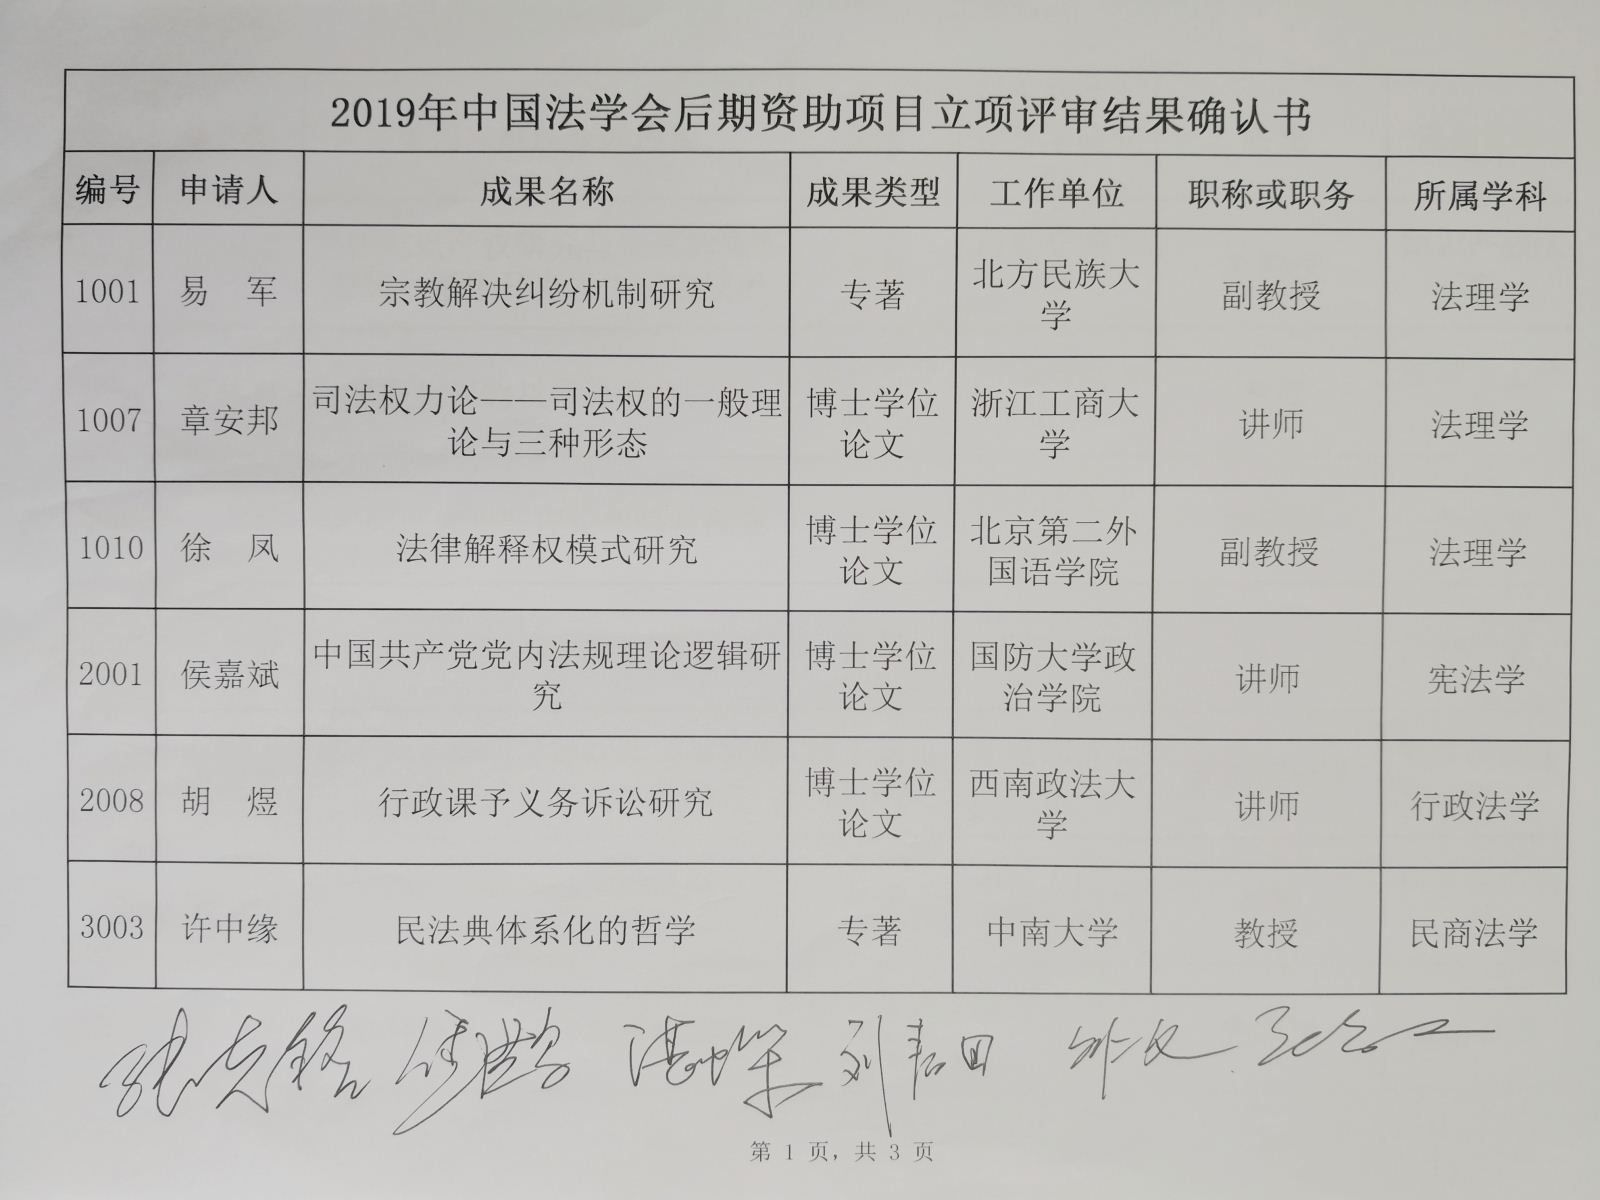 2019年中国法学会后期资助项目立项评审结果确认书
编号 申请人 成果名称 成果类型 工作单位 职称或职务 所属学科
1001 易 军 宗教解决纠纷机制研究 专著 北方民族大
学 副教授 法理学
1007 章安邦 司法权力论——司法权的一般理
论与三种形态 博士学位
论文 浙江工商大
学 讲师 法理学
1010 徐 凤 法律解释权模式研究 博士学位
论文 北京第二外
国语学院 副教授 法理学
2001 侯嘉斌 中国共产党党内法规理论逻辑研
究 博士学位
论文 国防大学政
治学院 讲师 宪法学
2008 胡 煜 行政课予义务诉讼研究 博士学位
论文 西南政法大
学 讲师 行政法学
3003 许中缘 民法典体系化的哲学 专著 中南大学 教授 民商法学
第 1 页，共 3 页